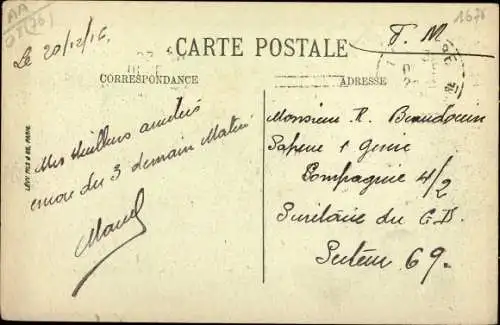 AA
1678
F. M
Le 20/12/16
CARTE POSTALE
CORRESPONDANCE
ADRESSE
Mes meilleurs amitiés
encore du 3 demain Matin
Marcel
Monsieur R. Beaudouin
Sapeur 1 Genie
Compagnie 4/2
du C.D.
Secteur 69.
LÉVY FILS & CIE, PARIS